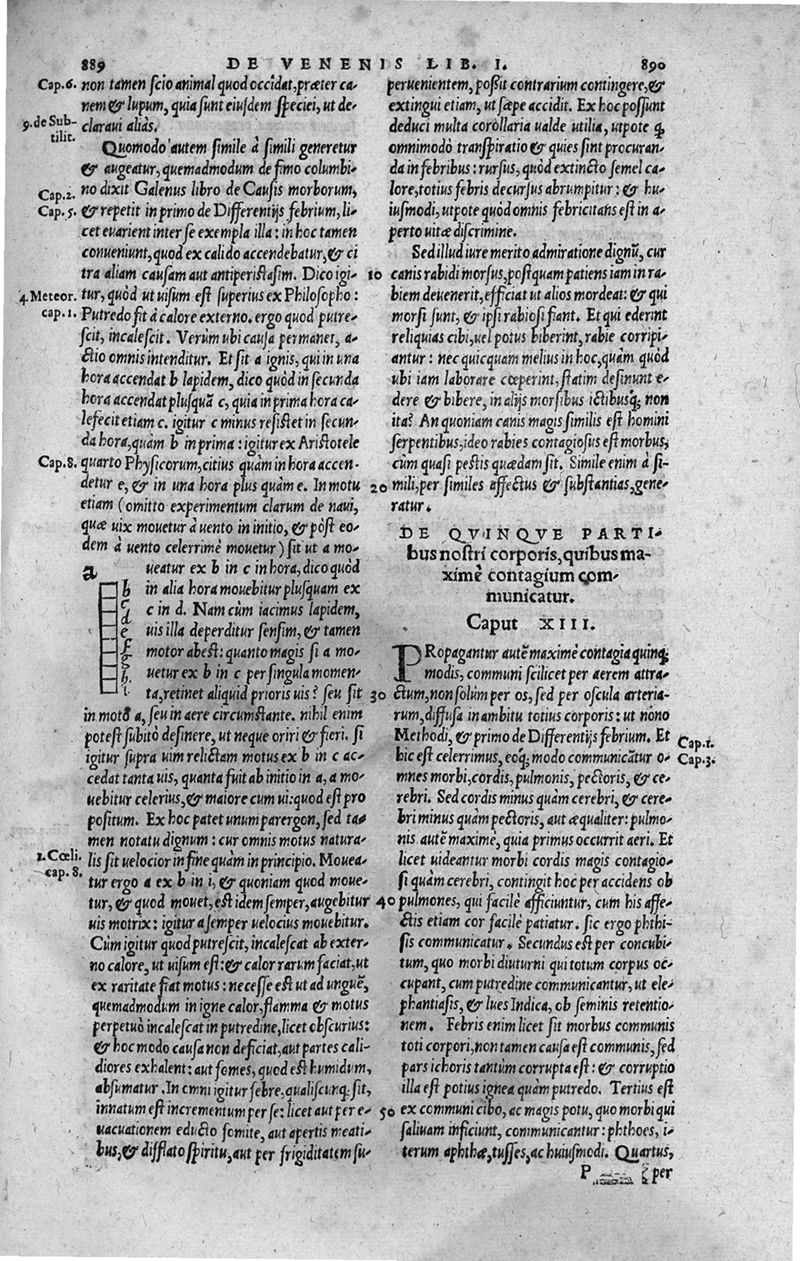 889 DE VENENIS LIB. I. 890
Cap. 6. non tamen scio animal quod occidat, præter ca-
nem & lupum, quia sunt eiusdem speciei, ut de-
9. de Sub- claraui aliàs.
tilit.
Quomodo autem simile à simili generetur
& augeatur, quemadmodum de fimo columbi-
Cap. 2. no dixit Galenus libro de Causis morborum,
Cap. 5. & repetit in primo de Differentijs febrium, li-
cet euarient inter se exempla illa: in hoc tamen
conueniunt, quod ex calido accendebatur, & ci
tra aliam causam aut antiperistasim. Dico igi-
4. Meteor. tur, quòd ut uisum est superius ex Philosopho:
cap. 1. Putredo fit à calore externo. ergo quod putre-
scit, incalescit. Verùm ubi causa permanet, a-
ctio omnis intenditur. Et sit a ignis, qui in una
hora accendat b lapidem, dico quòd in secunda
hora accendat plusquã c, quia in prima hora ca-
lefecit etiam c. igitur c minus resistet in secun-
da hora, quàm b in prima: igitur ex Aristotele
Cap. 8. quarto Physicorum, citius quàm in hora accen-
detur e, & in una hora plus quàm e. In motu
etiam (omitto experimentum clarum de naui,
quæ uix mouetur à uento in initio, & pòst eo-
dem à uento celerrimè mouetur) sit ut a mo-
ueatur ex b in c in hora, dico quòd
in alia hora mouebitur plusquam ex
c in d. Nam cùm iacimus lapidem,
uis illa deperditur sensim, & tamen
motor abest: quanto magis si a mo-
uetur ex b in c per singula momen-
ta, retinet aliquid prioris uis? seu sit
a
b
c
d
e
f
g
h
i
in motu a, seu in aere circumstante. nihil enim
potest subitò desinere, ut neque oriri & fieri. si
igitur supra uim relictam motus ex b in c ac-
cedat tanta uis, quanta fuit ab initio in a, a mo-
uebitur celerius, & maiore cum ui: quod est pro
positum. Ex hoc patet unum parergon, sed ta-
men notatu dignum: cur omnis motus natura-
1. Cœli. lis sit uelocior in fine quàm in principio. Mouea-
cap. 8. tur ergo a ex b in i, & quoniam quod moue-
tur, & quod mouet, est idem semper, augebitur
uis motrix: igitur a semper uelocius mouebitur.
Cùm igitur quod putrescit, incalescat ab exter-
no calore, ut uisum est: & calor rarum faciat, ut
ex raritate fiat motus: necesse est ut ad unguẽ,
quemadmodum in igne calor, flamma & motus
perpetuò incalescat in putredine, licet obscurius:
& hoc modo causa non deficiat, aut partes cali-
diores exhalent: aut fomes, quod est humidum,
absumatur. In omni igitur febre, qualiscunq; sit,
innatum est incrementum per se: licet aut per e-
uacuationem educto fomite, aut apertis meati-
bus, & difflato spiritu, aut per frigiditatem su-
peruenientem, possit contrarium contingere, &
extingui etiam, ut sæpe accidit. Ex hoc possunt
deduci multa corollaria ualde utilia, utpote q̃
omnimodò transpiratio & quies sint procuran-
da in febribus: rursus, quòd extincto semel ca-
lore, totius febris decursus abrumpitur: & hu-
iusmodi, utpote quòd omnis febricitans est in a-
perto uitæ discrimine.
Sed illud iure merito admiratione dignũ, cur
10 canis rabidi morsus, postquam patiens iam in ra-
biem deuenerit, efficiat ut alios mordeat: & qui
morsi sunt, & ipsi rabiosi fiant. Et qui ederint
reliquias cibi, uel potus biberint, rabie corripi-
antur: nec quicquam melius in hoc, quàm quòd
ubi iam laborare cœperint, statim desinunt e-
dere & bibere, in alijs morsibus ictibusq; non
ita? An quoniam canis magis similis est homini
serpentibus, ideo rabies contagiosus est morbus,
cùm quasi pestis quædam sit. Simile enim à si-
20 mili, per similes affectus & substantias, gene-
ratur.
DE QVINQVE PARTI-
bus nostri corporis, quibus ma-
ximè contagium com-
municatur.
Caput XIII.
PRopagantur autẽ maximè contagia quinq;
modis, communi scilicet per aerem attra-
30 ctum, non solùm per os, sed per oscula arteria-
rum, diffusa in ambitu totius corporis: ut nono
Methodi, & primo de Differentijs febrium. Et Cap. 1.
hic est celerrimus, eoq; modo communicãtur o- Cap. 3.
mnes morbi, cordis, pulmonis, pectoris, & ce-
rebri. Sed cordis minus quàm cerebri, & cere-
bri minus quàm pectoris, aut æqualiter: pulmo-
nis autẽ maximè, quia primus occurrit aeri. Et
licet uideantur morbi cordis magis contagio-
si quàm cerebri, contingit hoc per accidens ob
40 pulmones, qui facilè afficiuntur, cum his affe-
ctis etiam cor facilè patiatur. sic ergo phthi-
sis communicatur. Secundus est per concubi-
tum, quo morbi diuturni qui totum corpus oc-
cupant, cum putredine communicantur, ut ele-
phantiasis, & lues Indica, ob seminis retentio-
nem. Febris enim licet sit morbus communis
toti corpori, non tamen causa est communis, sed
pars ichoris tantùm corrupta est: & corruptio
illa est potius ignea quàm putredo. Tertius est
50 ex communi cibo, ac magis potu, quo morbi qui
saliuam inficiunt, communicantur: phthoes, i-
terum aphthæ, tusses, ac huiusmodi. Quartus,
P per